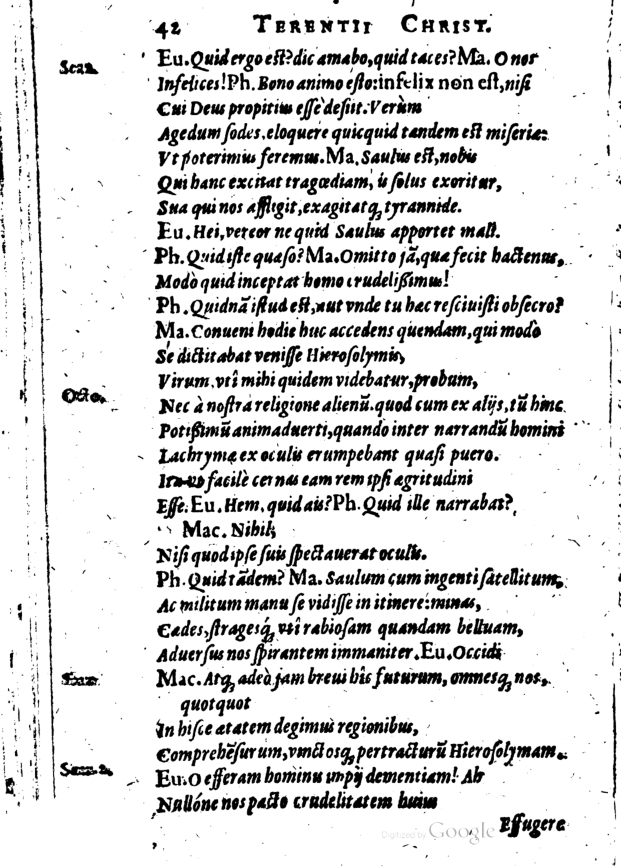 42 TERENTII CHRIST.
Eu. Quid ergo est? dic amabo, quid taces? Ma. O nos
Infelices! Ph. Bono animo esto: infelix non est, nisi
Cui Deus propitius esse desiit. Verùm
Agedum sodes, eloquere quicquid tandem est miseriæ:
Vt poterimus feremus. Ma. Saulus est, nobis
Qui hanc excitat tragœdiam, is solus exoritur,
Sua qui nos affligit, exagitatq; tyrannide.
Eu. Hei, vereor ne quid Saulus apportet mali.
Ph. Quid iste quæso? Ma. Omitto jã, quæ fecit hactenus,
Modò quid inceptat homo crudelißimus!
Ph. Quidnã istud est, aut vnde tu hæc resciuisti obsecro?
Ma. Conueni hodie huc accedens quendam, qui modò
Se dictitabat venisse Hierosolymis,
Virum, vti mihi quidem videbatur, probum,
Nec à nostra religione alienũ. quod cum ex alijs, tũ hinc
Potißimũ animaduerti, quando inter narrandũ homini
Lachrymæ ex oculis erumpebant quasi puero.
facilè cernas eam rem ipsi ægritudini
Esse. Eu. Hem, quid ais? Ph. Quid ille narrabat?
Mac. Nihil,
Nisi quod ipse suis spectauerat oculis.
Ph. Quid tãdem? Ma. Saulum cum ingenti satellitum,
Ac militum manu se vidisse in itinere: minas,
Cædes, stragesq́; vti rabiosam quandam belluam,
Aduersus nos spirantem immaniter. Eu. Occidi
Mac. Atq; adeò jam breui his futurum, omnesq; nos,
quotquot
In hisce ætatem degimus regionibus,
Comprehẽsurum, vinctosq; pertracturũ Hierosolymam.
Eu. O efferam hominis impij dementiam! Ah
Nullóne nos pacto crudelitatem huius
Effugere
Digitized by Google